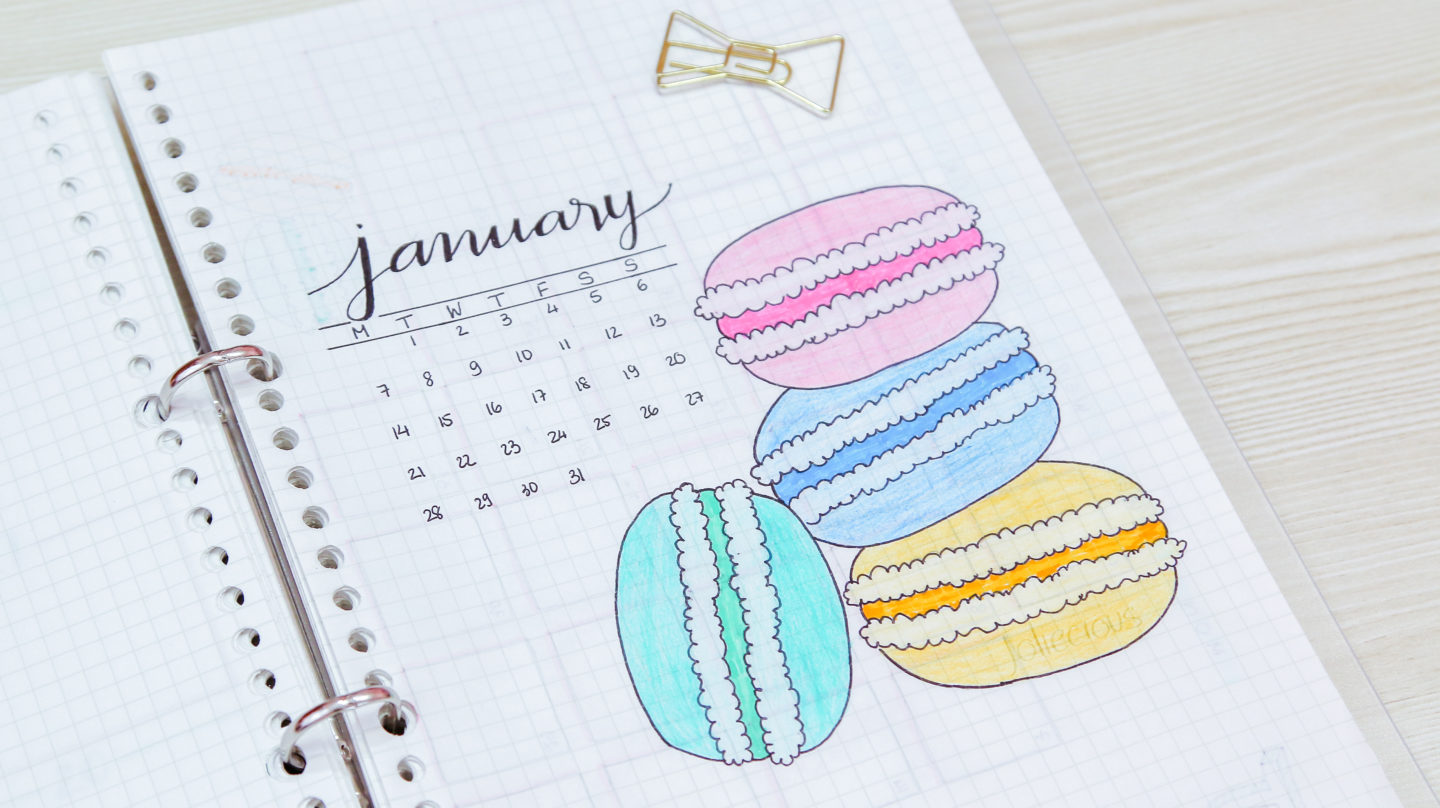 january
M T W T F S S
1 2 3 4 5 6
7 8 9 10 11 12 13
14 15 16 17 18 19 20
21 22 23 24 25 26 27
28 29 30 31
Joliecious